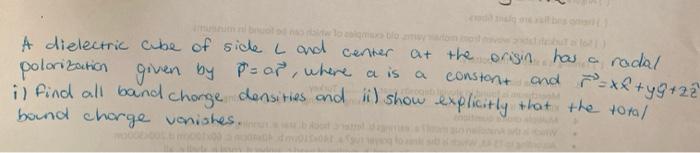 A dielectric cube of side L and center at the origin has a radial
polarization given by P⃗=ar⃗, where a is a constant and r⃗=xx̂+yŷ+zẑ
i) find all bound charge densities and ii) show explicitly that the total
bound charge vanishes.